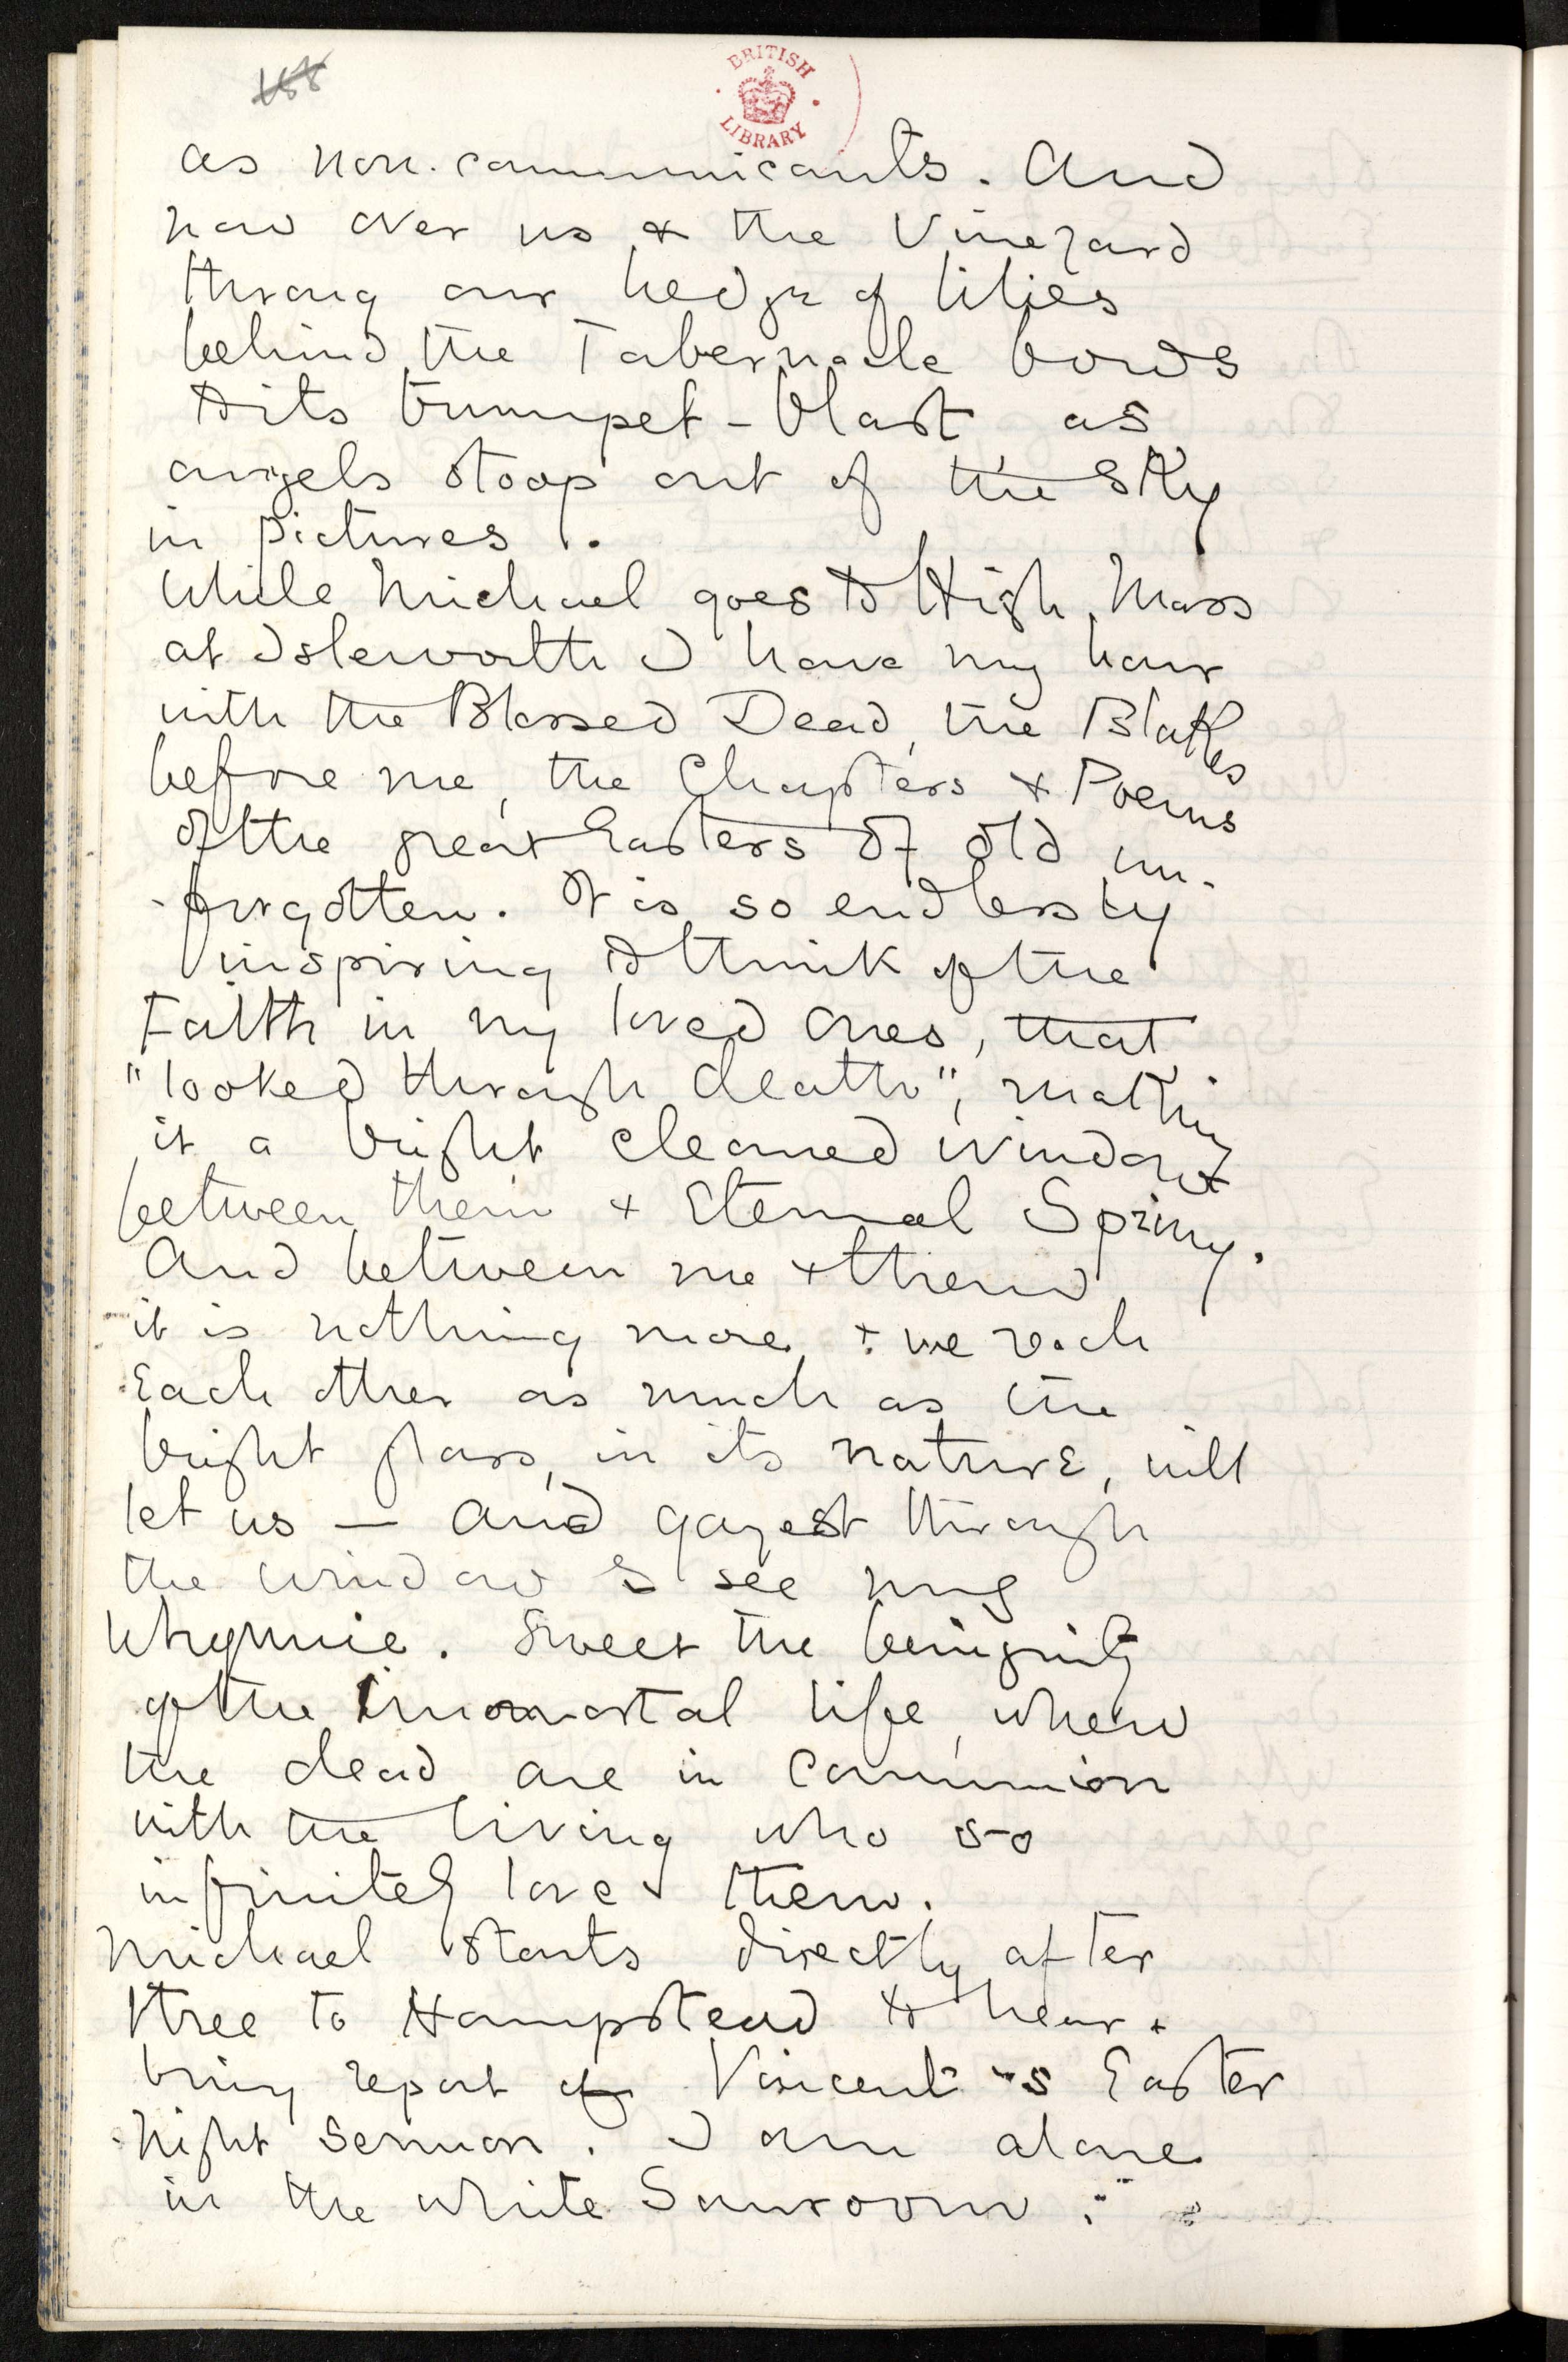 188
BRITISH
LIBRARY
as non-communicants. And
now over us & the Vineyard
throng our hedge of lilies
behind the Tabernacle bows
to its trumpet-blast as
angels stoop out of the Sky
in pictures.
While Michael goes to High Mass
at Isleworth I have my hour
with the Blessed Dead, the Blakes
before me, the Chapters & Poems
of the great Easters of old un-
-forgotten. It is so endlessly
inspiring to think of the
Faith in my loved ones, that
"looked through death", making
it a bright cleaned window
between them & Eternal Spring.
And between me & them
it is nothing more, & we reach
Each other as much as the
bright glass, in its nature, will
let us — and gazest through
the window & see my
Whymmie. Sweet the benignity
of the immortal life, when
the dead are in Communion
with the living who so
infinitely love them.
Michael starts directly after
tree to Hampstead to hear &
bring report of Vincent's Easter
night Sermon. I am alone
in the white Sunroom: